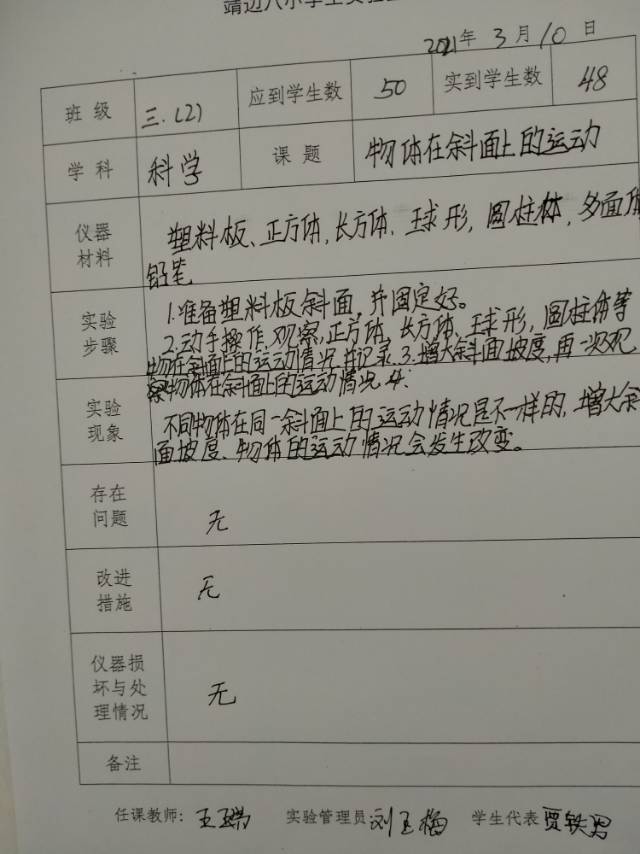 靖边八小学生实验
2021年 3月10日
班级 三.(2) 应到学生数 50 实到学生数 48
学科 科学 课题 物体在斜面上的运动
仪器材料 塑料板、正方体,长方体、球形,圆柱体,多面体
铅笔
实验步骤 1.准备塑料板斜面,并固定好。
2.动手操作,观察,正方体、长方体、球形,圆柱体等
物在斜面上的运动情况并记录.3.增大斜面坡度,再一次观
察物体在斜面上的运动情况.4.
实验现象 不同物体在同一斜面上的运动情况是不一样的,增大斜
面坡度、物体的运动情况会发生改变。
存在问题 无
改进措施 无
仪器损坏与处理情况 无
备注
任课教师: 王瑞 实验管理员 刘玉梅 学生代表 贾轶男